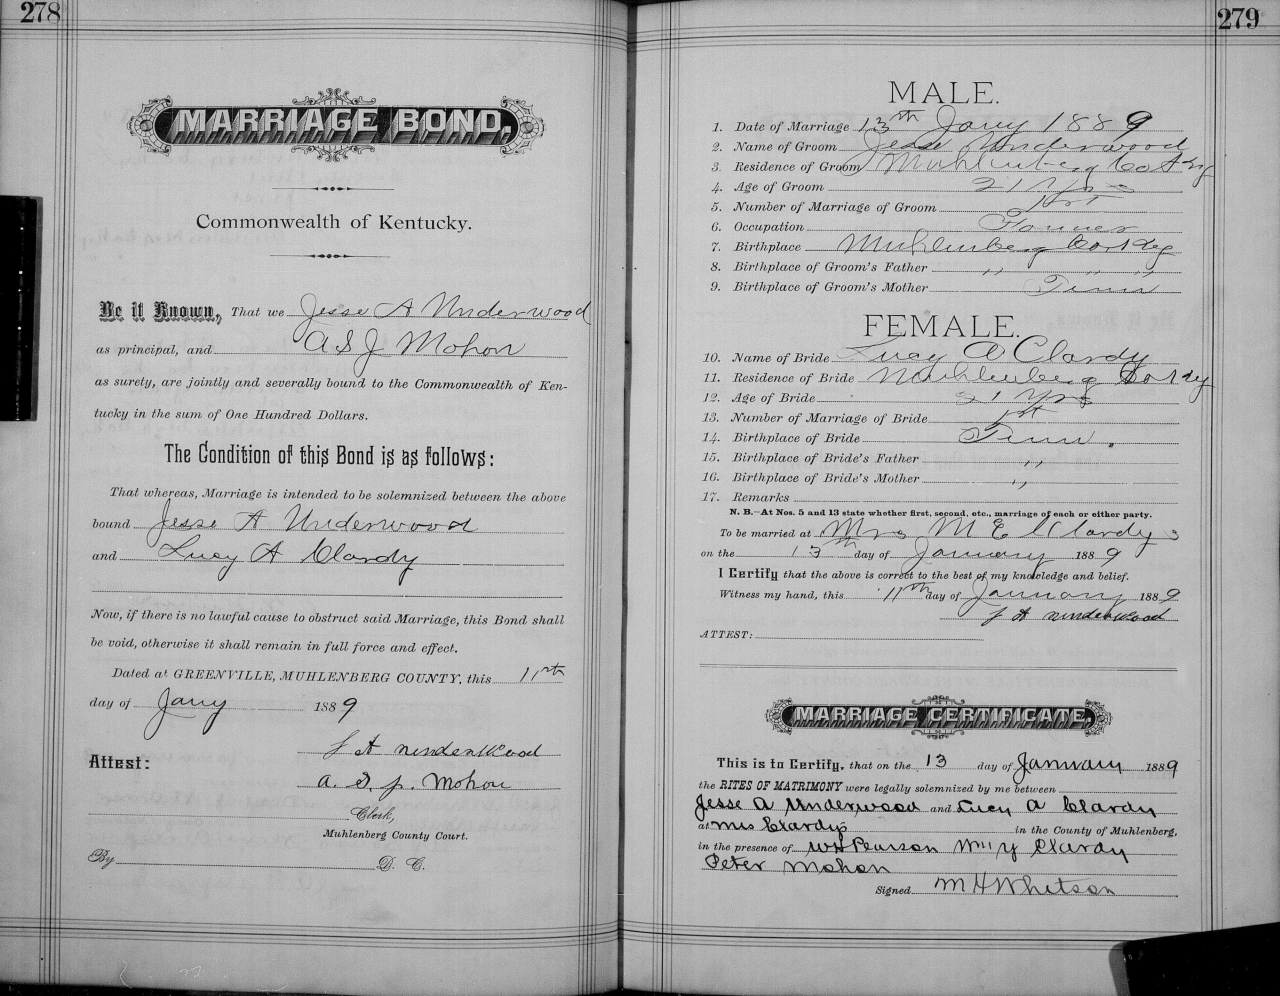 278
MARRIAGE BOND,
Commonwealth of Kentucky.
Be it Known, That we Jesse A Underwood
as principal, and A S J Mohon
as surety, are jointly and severally bound to the Commonwealth of Ken-
tucky in the sum of One Hundred Dollars.
The Condition of this Bond is as follows:
That whereas, Marriage is intended to be solemnized between the above
bound Jesse A Underwood
and Lucy A Clardy
Now, if there is no lawful cause to obstruct said Marriage, this Bond shall
be void, otherwise it shall remain in full force and effect.
Dated at GREENVILLE, MUHLENBERG COUNTY, this 11th
day of Jany 1889
J A underwood
Attest:
a. S. J. Mohon
Clerk,
Muhlenberg County Court.
By D. C.
279
MALE.
1. Date of Marriage 13th Jany 1889
2. Name of Groom Jesse A Underwood
3. Residence of Groom Muhlenberg Co Ky
4. Age of Groom 21 Yrs
5. Number of Marriage of Groom 1st
6. Occupation Farmer
7. Birthplace Muhlenberg Co Ky
8. Birthplace of Groom's Father " " "
9. Birthplace of Groom's Mother Tenn
FEMALE.
10. Name of Bride Lucy A Clardy
11. Residence of Bride Muhlenberg Co Ky
12. Age of Bride 21 Yrs
13. Number of Marriage of Bride 1st
14. Birthplace of Bride Tenn.
15. Birthplace of Bride's Father "
16. Birthplace of Bride's Mother "
17. Remarks
N. B.—At Nos. 5 and 13 state whether first, second, etc., marriage of each or either party.
To be married at Mrs M E Clardys
on the 13th day of January 1889
I Certify that the above is correct to the best of my knowledge and belief.
Witness my hand, this 11th day of January 1889
J A underwood
ATTEST:
MARRIAGE CERTIFICATE.
This is to Certify, that on the 13 day of January 1889
the RITES OF MATRIMONY were legally solemnized by me between
Jesse A Underwood and Lucy A Clardy
at mrs Clardys in the County of Muhlenberg,
in the presence of WH Pearson Clardy
Peter Mohon
Signed M H Whitson